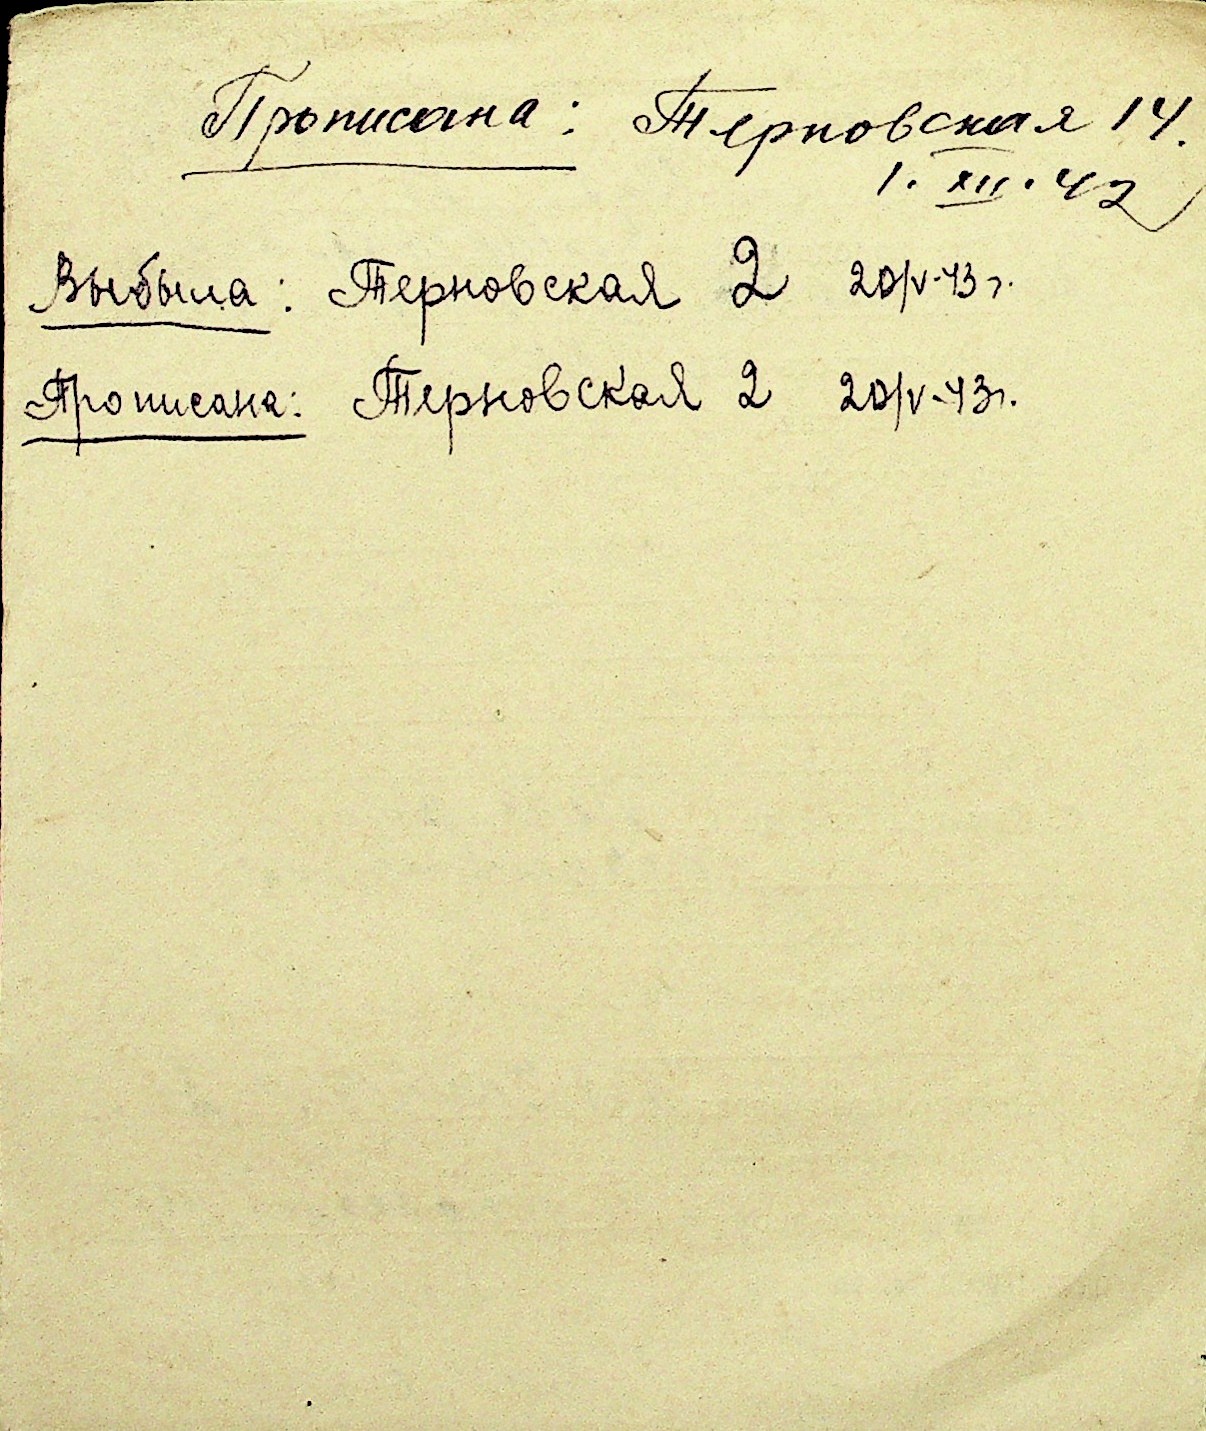 Прописана: Терновская 14.
1. XII. 42
Выбыла: Терновская 2 20/V-43 г.
Прописана: Терновская 2 20/V-43 г.